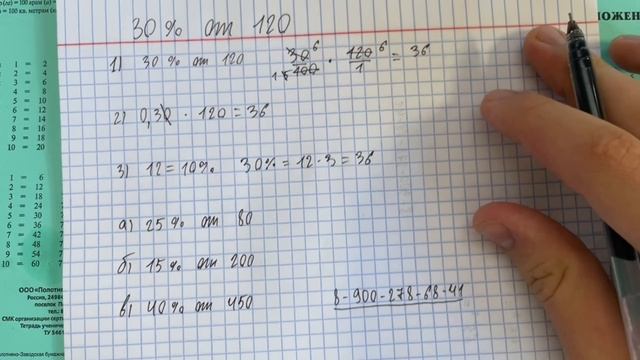 30 % от 120
1) 30 % от 120 30/100 · 120/1 = 36
2) 0,30 · 120 = 36
3) 12 = 10% 30% = 12 · 3 = 36
а) 25 % от 80
б) 15 % от 200
в) 40 % от 450
8-900-278-68-41
1 = 2
2 = 4
3 = 6
4 = 8
5 = 10
6 = 12
7 = 14
8 = 16
9 = 18
10 = 20
1 = 6
2 = 12
3 = 18
4 = 24
5 = 30
6 = 36
7 = 42
8 = 48
9 = 54
10 = 60
ООО «Полотня
Россия, 2498
поселок П
тел.:
СМК организации серт
Тетрадь ученичес
ТУ 5461